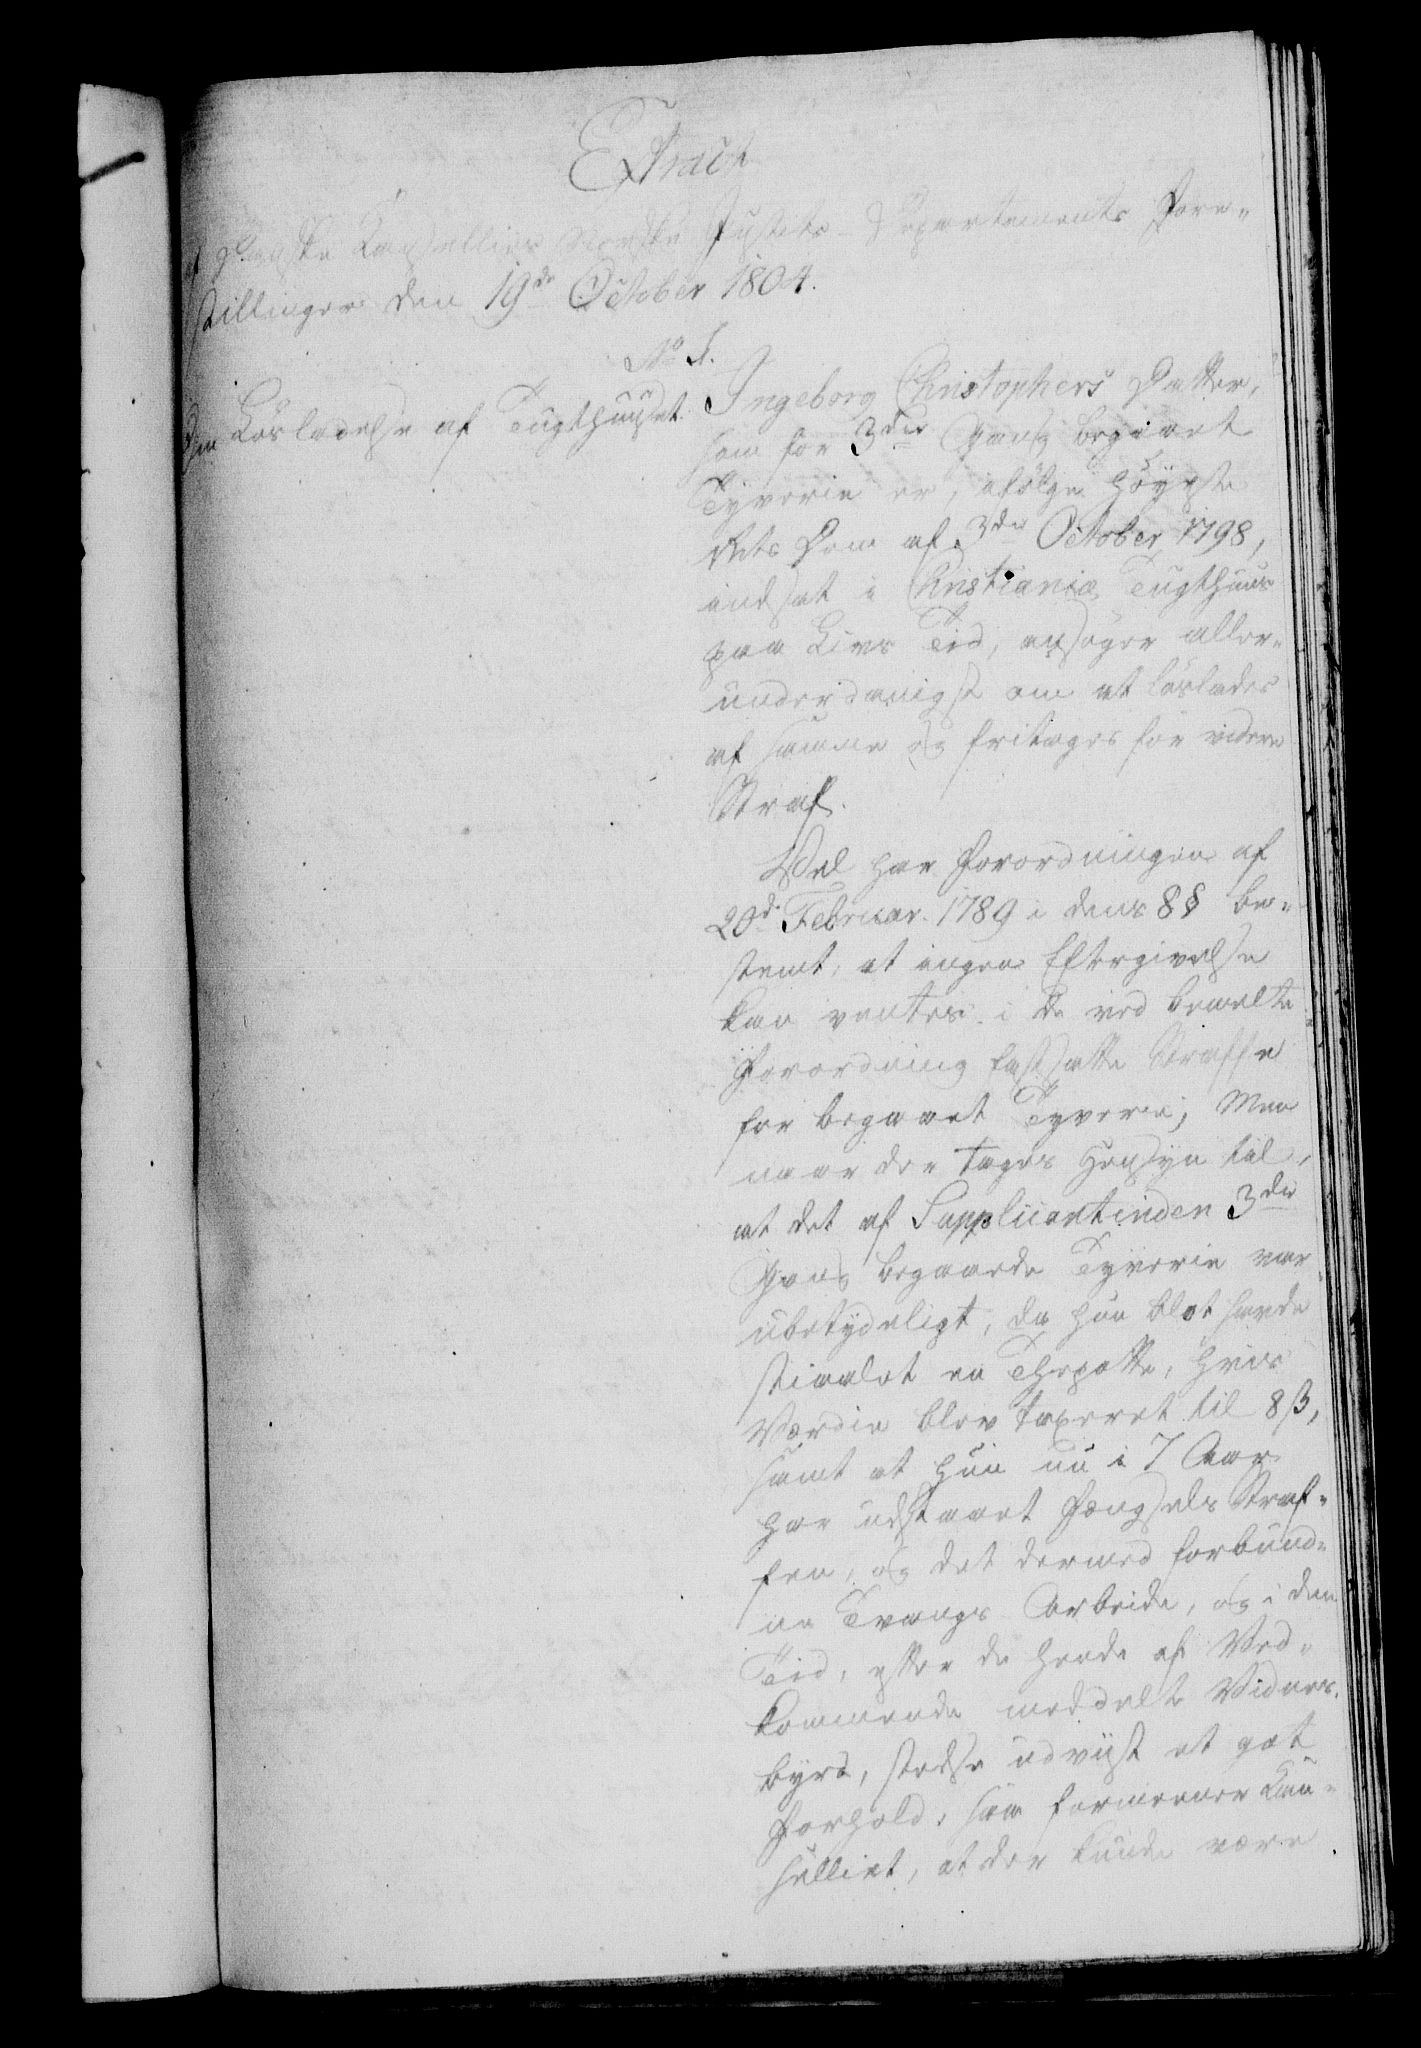 Extract
af Danske Cancellies Norske Justits-Departements Fore-
stillinger den 19de October 1804.
No 1.
Om Løsladelse af Tugthuuset.
Ingeborg Christophers Datter,
som for 3die Gang begaaet
Tyverie er, ifølge Høyeste
Rets Dom af 3die October 1798,
indsat i Christiania Tugthuus
paa Livs Tid, ansøger aller-
underdanigst om at løslades
af samme og fritages for videre
Straf.
Vel har Forordningen af
20d Februar 1789 i dens 8§ be-
stemt, at ingen Eftergivelse
kan ventes i de ved bemelte
Forordning fastsatte Straffe
for begaaet Tyverie; Men
naar der tages Hensyn til,
at det af Supplicantinden 3die
Gang begaaede Tyverie var
ubetydeligt, da hun blot havde
stiaalet en Theepotte, hvis
Værdie blev taxeret til 8 ß,
samt at hun nu i 7 Aar
har udstaaet Fængsels Straf-
fen, og det dermed forbund-
ne Tvangs Arbeide, og i den
Tid, efter de hende af Ved-
kommende meddelte Vidnes-
byrd, stedse udviist et got
Forhold; saa formeener Can-
celliet, at der kunde være